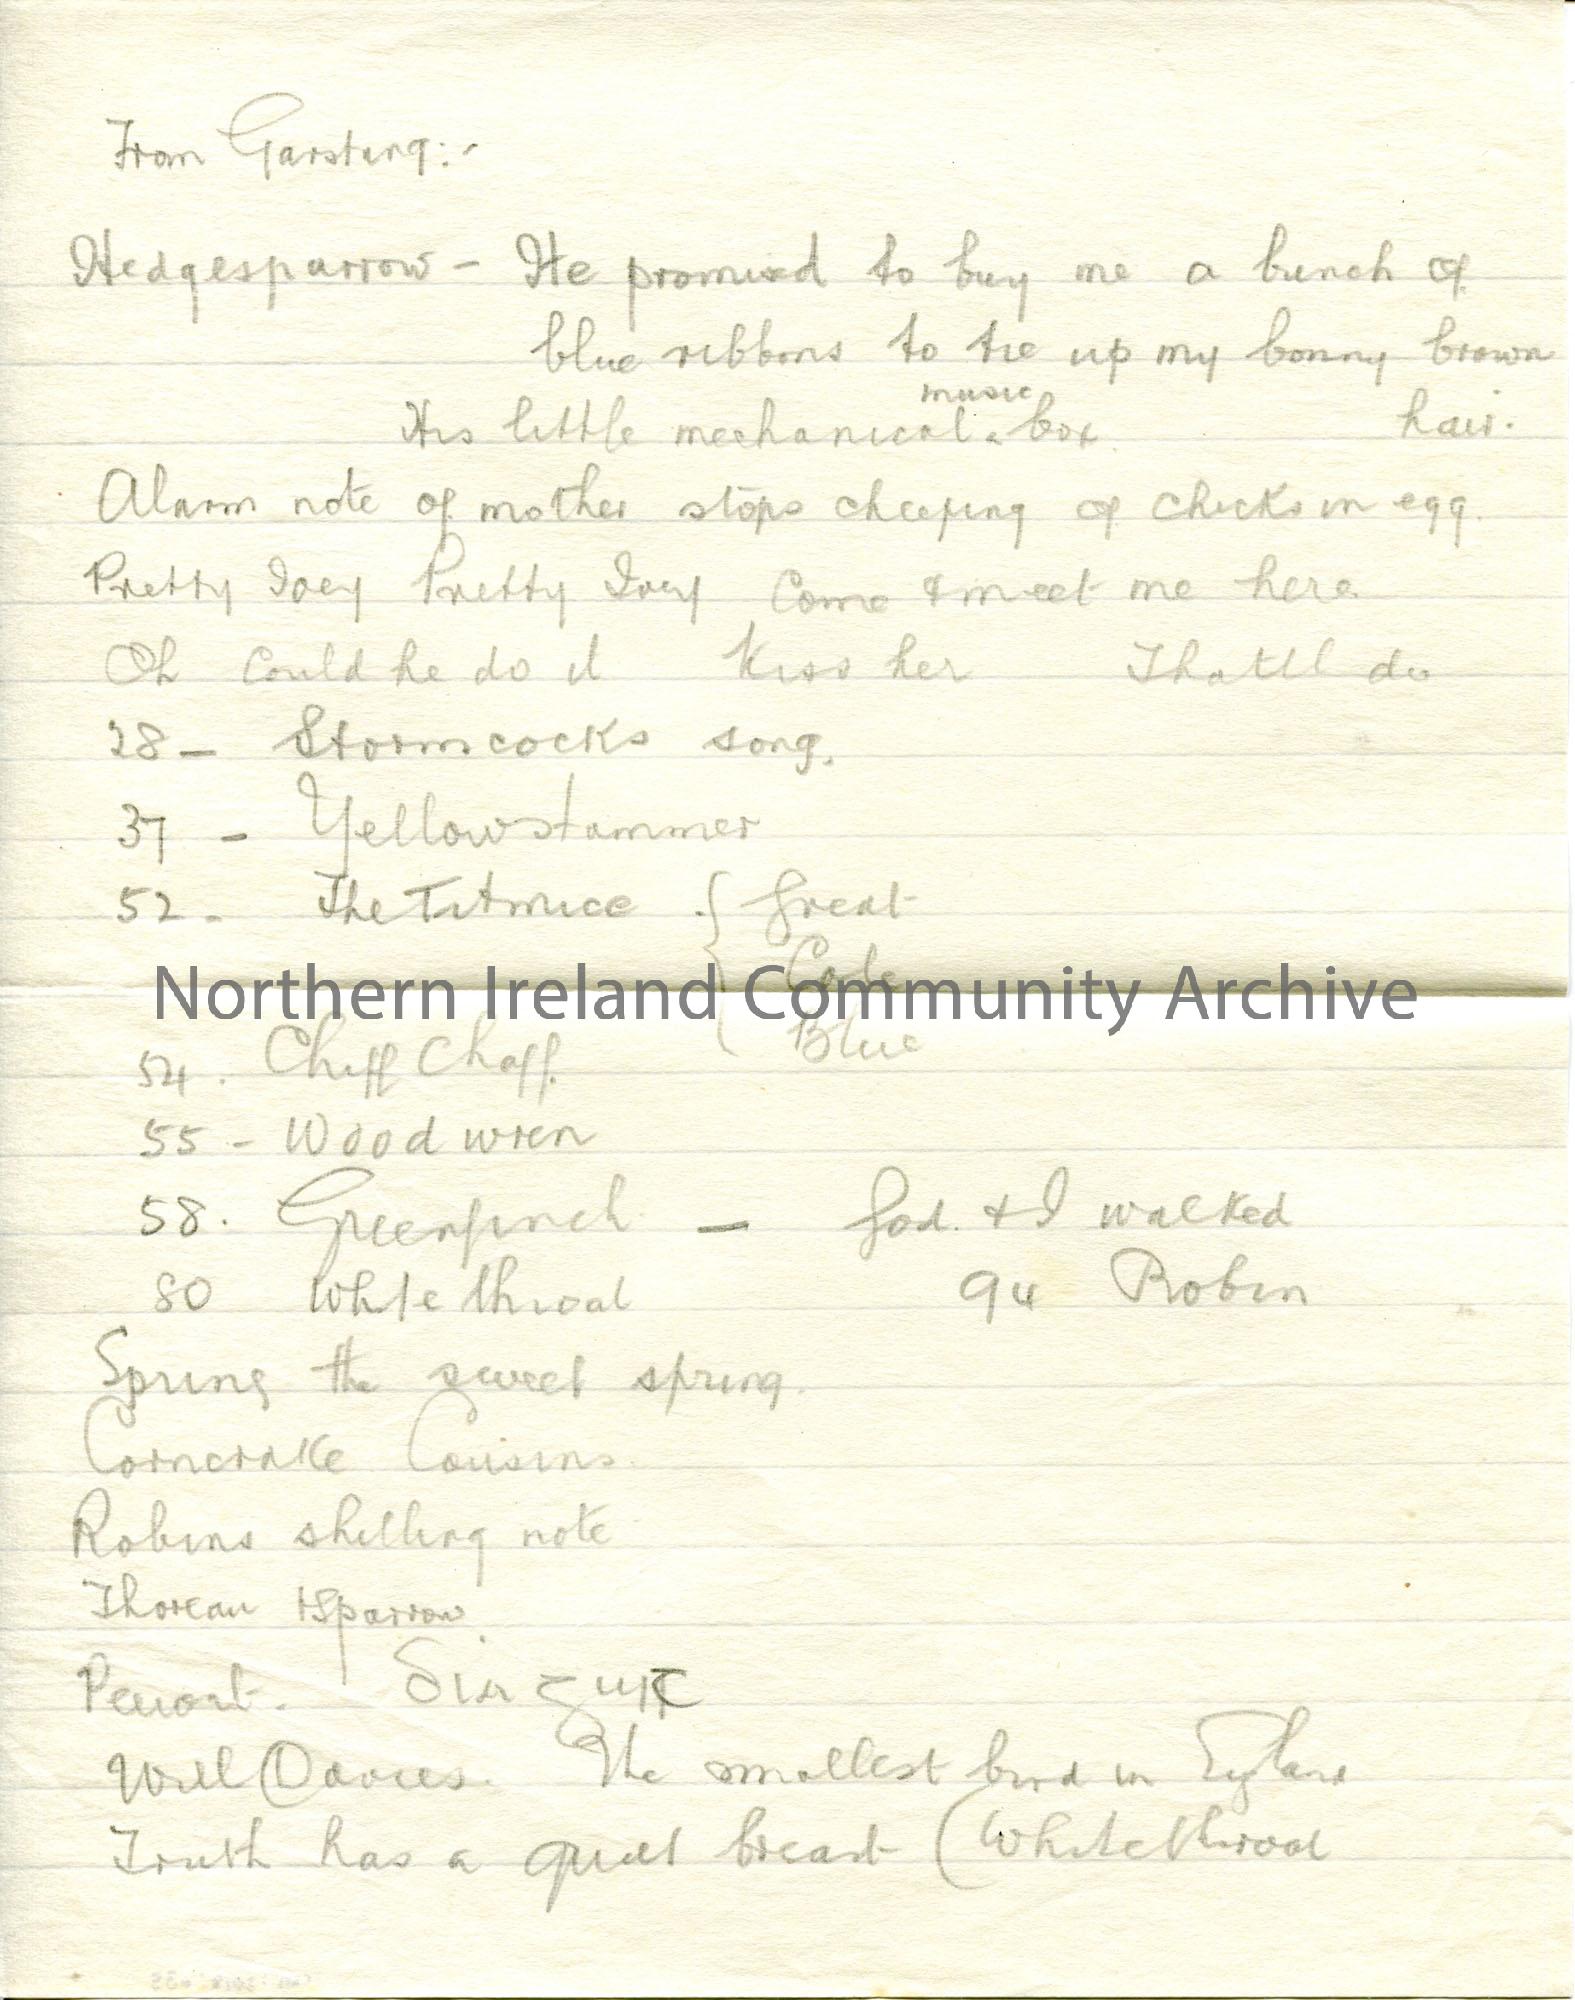 From Garstang:-
Hedgesparrow - He promised to buy me a bunch of
blue ribbons to tie up my bonny brown
hair.
His little mechanical music box
Alarm note of mother stops cheeping of chicks in egg.
Pretty Joey Pretty Joey Come & meet me here
Oh Could he do it Kiss her Thatll do
28 - Stormcocks song.
37 - Yellowstammer
52 - The Titmice { Great
Cole
Northern Ireland Community Archive
Blue
54. Chiff Chaff.
55 - Wood wren
58. Greenfinch - God. & I walked
80 White throat 94 Robin
Spring the sweet spring.
Corncrake Cousins.
Robins shilling note
Thoreau Sparrow
Peewit.
Will Davies. The smallest bird in England
Truth has a quiet breast (Whitethroat